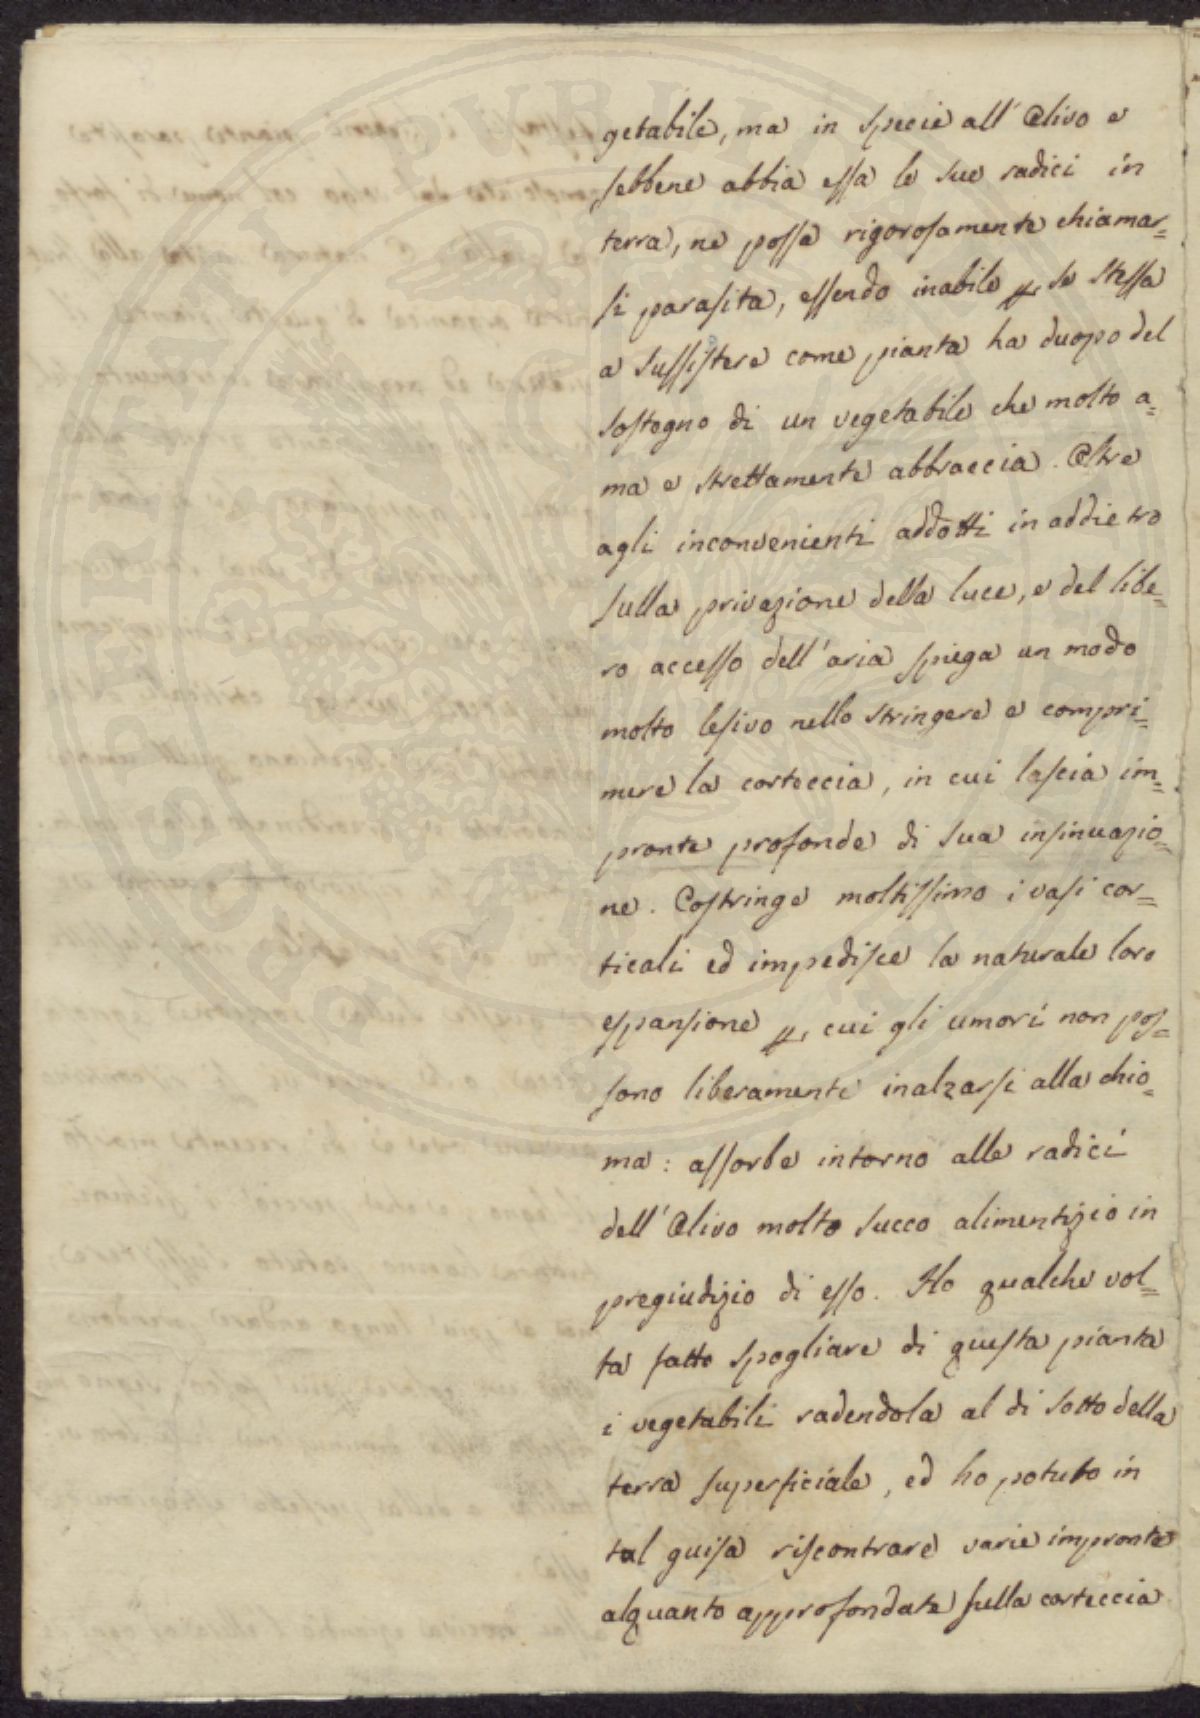 getabile, ma in specie all' Olivo e
sebbene abbia essa le sue radici in
terra, ne possa rigorosamente chiamar=
si parasita, essendo inabile p. se stessa
a sussistere come pianta ha duopo del
sostegno di un vegetabile che molto a=
ma e strettamente abbraccia. Oltre
agli inconvenienti addotti in addietro
sulla privazione della luce, e del libe=
ro accesso dell' aria spiega un modo
molto lesivo nello stringere e compri=
mere la corteccia, in cui lascia im=
pronte profonde di sua insinuazio=
ne. Costringe moltissimo i vasi cor=
ticali ed impedisce la naturale loro
espansione p. cui gli umori non pos=
sono liberamente inalzarsi alla chio=
ma: assorbe intorno alle radici
dell' Olivo molto succo alimentizio in
pregiudizio di esso. Ho qualche vol=
ta fatto spogliare di questa pianta
i vegetabili radendola al di sotto della
terra superficiale, ed ho potuto in
tal guisa riscontrare varie impronte
alquanto approfondate sulla corteccia